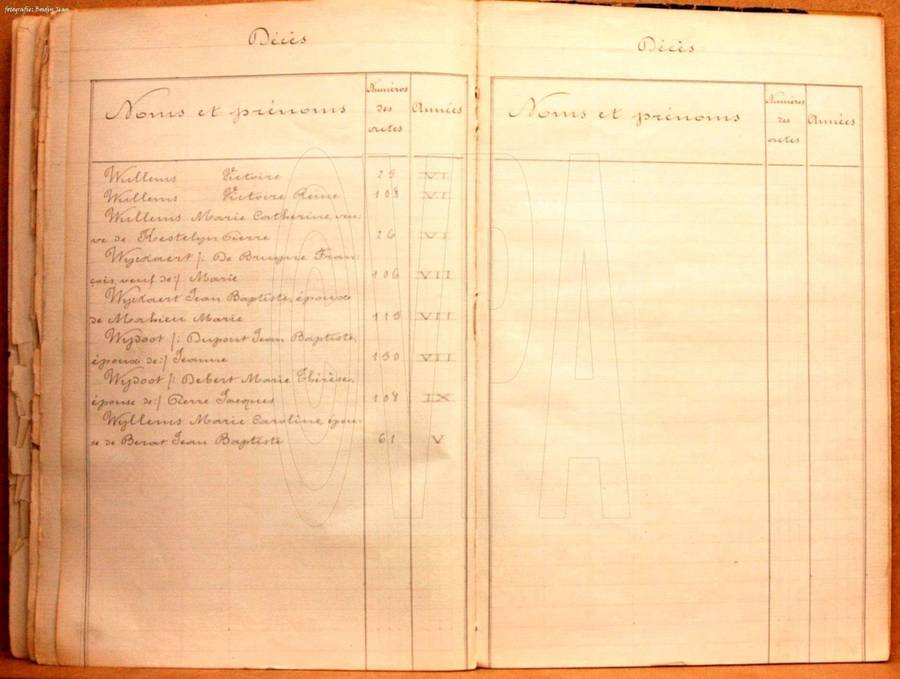 fotografie: Boudry Jean
Décès
Noms et prénoms
Numéros
des
actes
Années
Wullems Victoire 25 VI
Wullems Victoire Reine 108 VI
Wullems Marie Catherine, veu-
ve de Kestelyn Pierre 26 VI
Wyckaert /: De Bruyne Fran-
çois, veuf de:/ Marie 106 VII
Wyckaert Jean Baptiste, époux
de Mahieu Marie 115 VII
Wydoot /: Dupont Jean Baptiste,
époux de:/ Jeanne 150 VII
Wydoot /: Debert Marie Thérèse,
épouse de:/ Pierre Jacques 108 IX
Wyllems Marie Caroline, épou-
se de Berat Jean Baptiste 61 V
Décès
Noms et prénoms
Numéros
des
actes
Années
©VPA